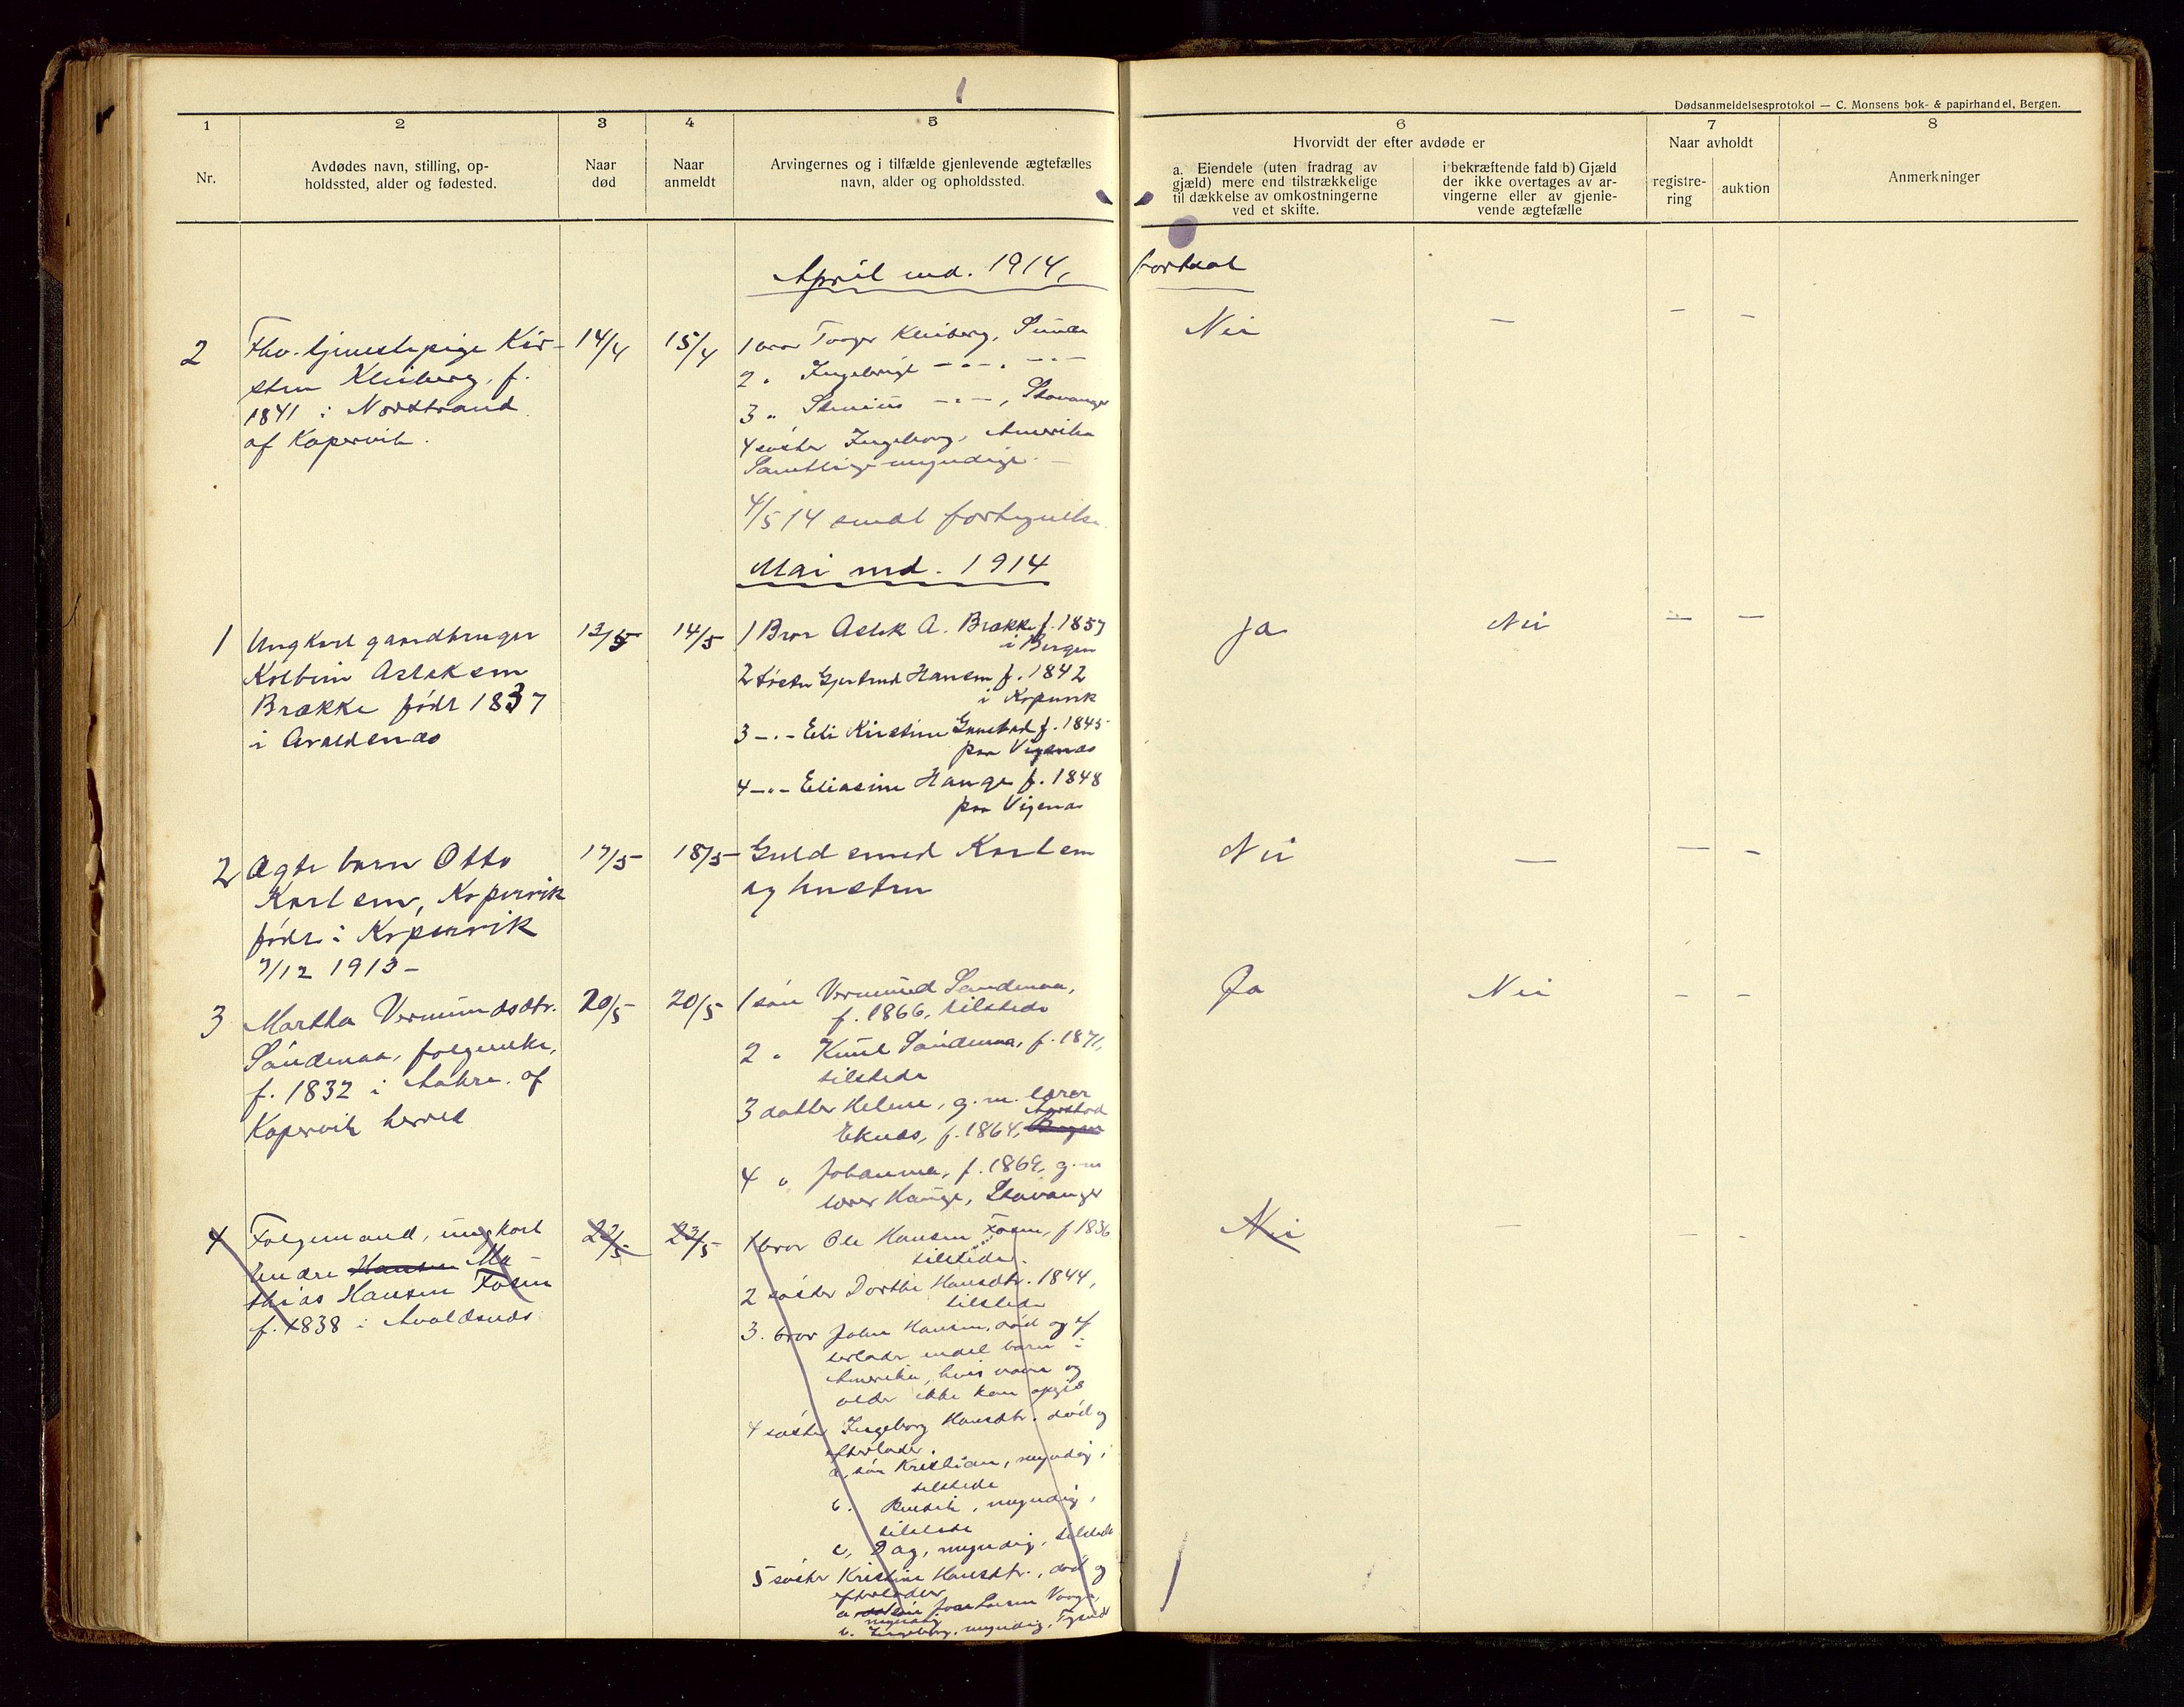 Dødsanmeldelsesprotokol — C. Monsens bok- & papirhandel, Bergen.
1 2 3 4 5 6 7 8
Nr.
Avdødes navn, stilling, op-
holdssted, alder og fødested.
Naar
død
Naar
anmeldt
Arvingernes og i tilfælde gjenlevende ægtefælles
navn, alder og opholdssted.
Hvorvidt der efter avdøde er
a. Eiendele (uten fradrag av
gjæld) mere end tilstrækkelige
til dækkelse av omkostningerne
ved et skifte.
i bekræftende fald b) Gjæld
der ikke overtages av ar-
vingerne eller av gjenle-
vende ægtefælle
Naar avholdt
registre-
ring
auktion
Anmerkninger
April md. 1914, fortsat
2
Fhv. tjenestepige Kir-
sten Kleiberg, f.
1841 i Norstrand
af Kopervik.
14/4
15/4
1 bror Torger Kleiberg,
2 " Ingebrigt — " — , — " —
3 " — " — , Stavanger
4 søster Ingeborg, Amerika
Samtlige myndige. —
4/5 14 sendt fortegnelse.
Nei — — —
Mai md. 1914
1
Ungkarl gaardbruger
Kolbein Asleksen
Brække født 1837
i Avaldsnæs
13/5
14/5
1 Bror Aslek A. Brække f. 1857
i Bergen
2 søster Gjertrud Hansen f. 1842
i Kopervik
3 — " — Eli Kirstine f. 1845
paa Vigsnæs
4 — " — Eliasine Hauge f. 1848
paa Vigsnæs
Ja Nei — —
2
Ægte barn Otto
Karlsen, Kopervik
født i Kopervik
7/12 1913 —
17/5
18/5
Guldsmed Karlsen
og hustru
Nei — — —
3
Martha Vermundsdtr.
Sandenaa, folgeenke,
f. 1832 i Aakre. af
Kopervik herred
20/5
20/5
1 søn Vermund Sandenaa,
f. 1866, tilstede
2 " Knut Sandenaa, f. 1871,
tilstede
3 datter Helene, g. m. lærer
Eknæs, f. 1864, Aarstad
4 " Johanna, f. 1869, g. m
lærer Hauge, Stavanger
Ja Nei — —
4
Folgemand, ungkarl
Endre Hansen Ma-
thias Hansen Fosen
f. 1838 i Avaldsnæs
22/5
23/5
1 bror Ole Hansen Fosen, f 1836
tilstede.
2 søster Dorthe Hansdtr. 1844,
tilstede
3. bror John Hansen, død og ef
terlader endel barn i
Amerika, hvis navn og
alder ikke kan opgis
4 søster Ingeborg Hansdtr. død og
efterlader
a, søn Kristian, myndig,
tilstede
b. Bendik, myndig,
tilstede
c, Dag, myndig, tilstede
5 søster Kristine Hansdtr., død og
efterlader
a Larsen
myndig
b. Ingeborg, myndig,
Nei — — —